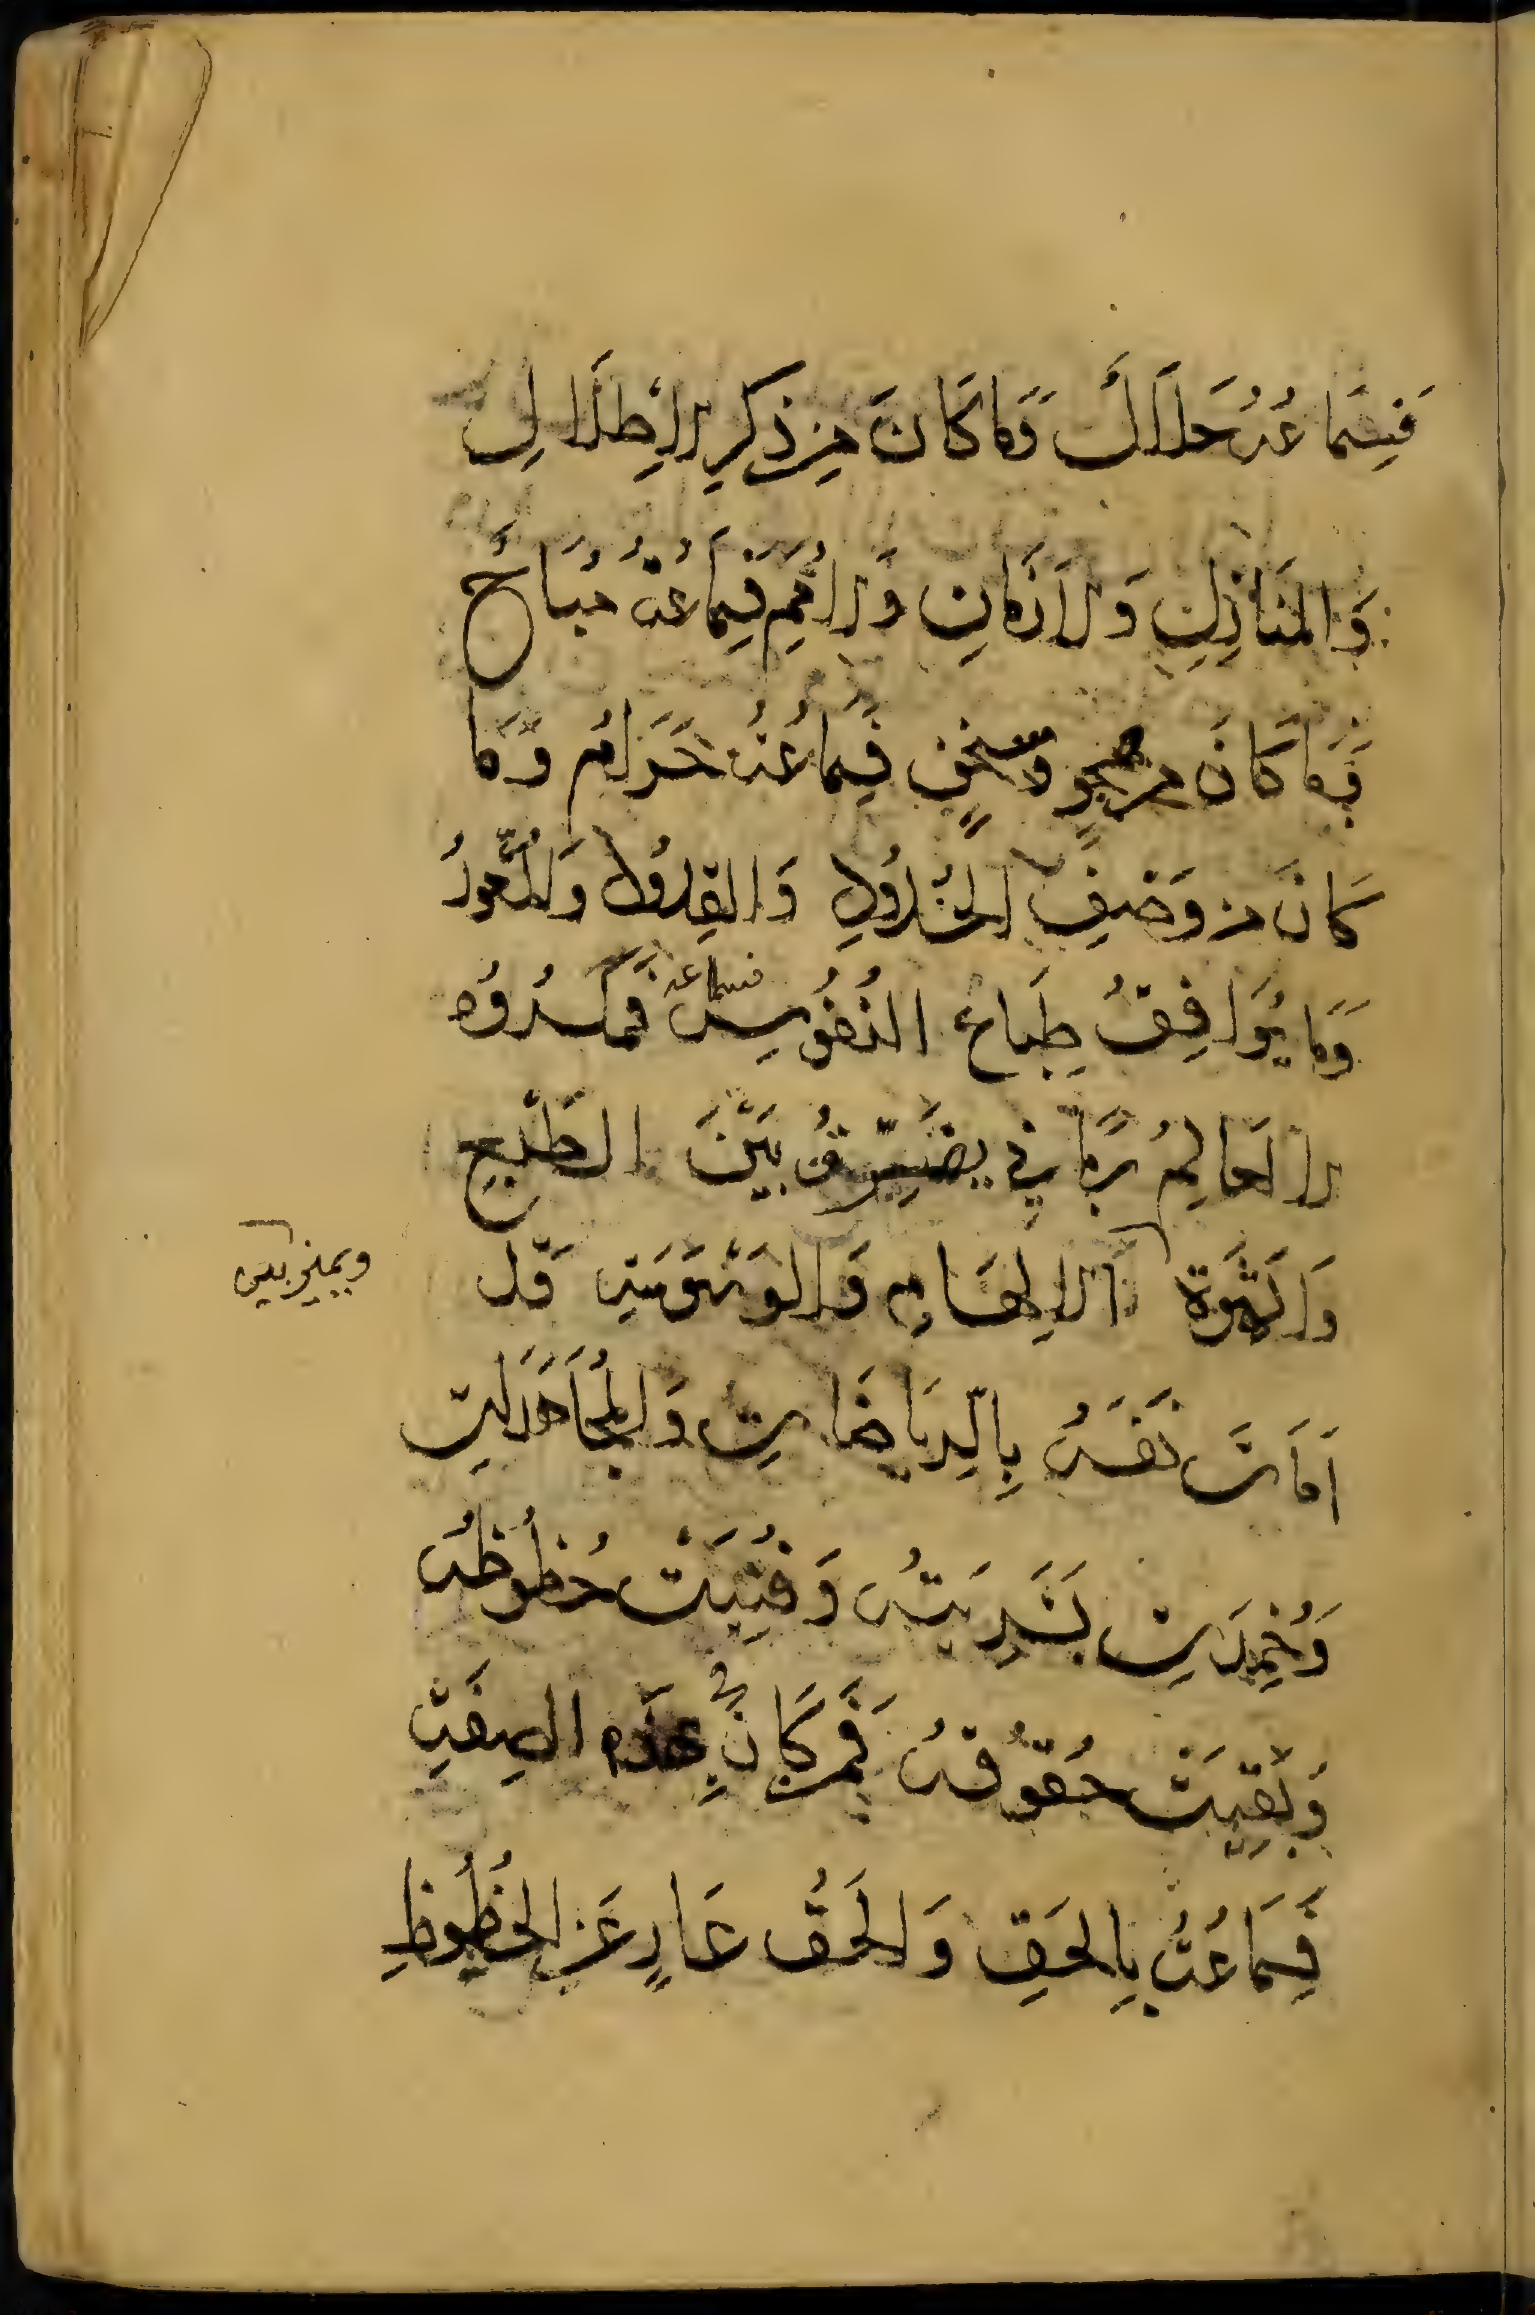 فَسِمَاعُهُ حَلَالٌ وَمَا كَانَ مِن ذِكرِ الأَطلَالِ
وَالمَنَازِلِ وَالأَزمَانِ وَالأُمَمِ فَسِمَاعُهُ مُبَاحٌ
وَمَا كَانَ من هجوٍ وسخفٍ فسِماعُهُ حَرَامٌ وَمَا
كَانَ من وَصفِ الخُدُودِ وَالقُدُودِ وَالشُّعُورِ
وَمَا يُوَافِقُ طِبَاعَ النُفُوسِ فسماعه مَكرُوه
إلا لعَالِمٍ رَبَّانِيٍ يُفَرِّقُ بَيْنَ الطَبْعِ
وَالشَهوَة الإلهَامِ وَالوَسْوَسَةِ قَد
ويميز بين
أمَاتَ نَفسَهُ بِالرِيَاضَاتِ وَالمُجَاهَدَاتِ
وَخُمِدَت بَشَرِيَتُهُ وَفَنِيَتْ حُظُوظُهُ
وَبَقِيَتْ حُقُوقُهُ فَمَن كَانَ في بهَذِهِ الصِفَةِ
فَسِمَاعُهُ بِالحَقِ وَالحَقُ عَارٍ عَنِ الحُظُوظِ